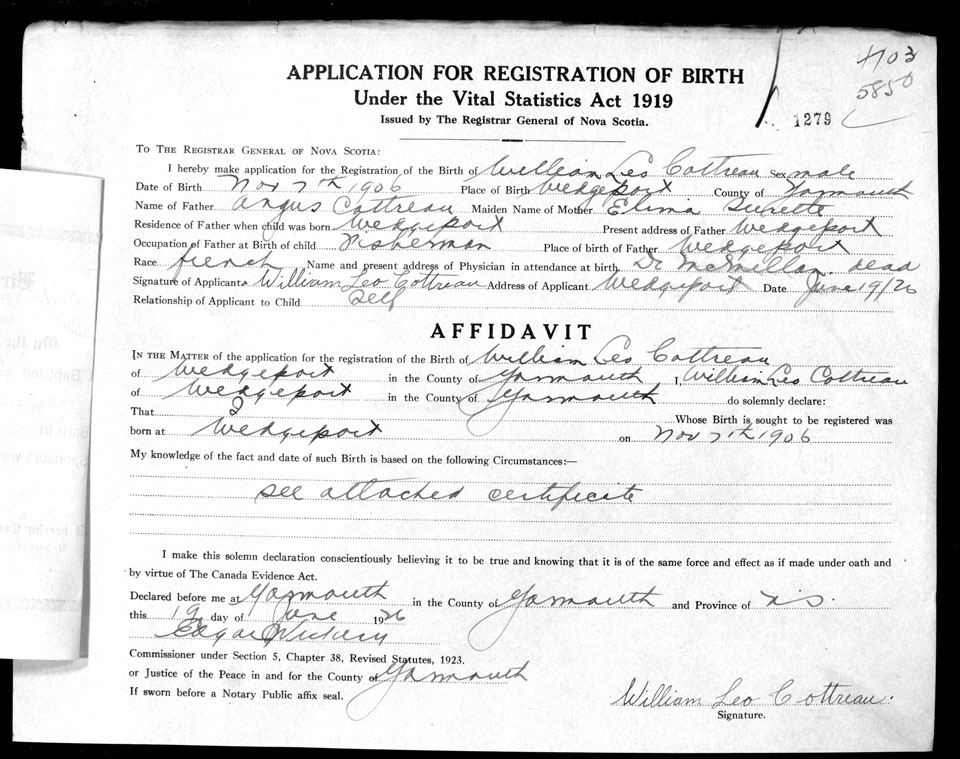 4703
5850
1279
APPLICATION FOR REGISTRATION OF BIRTH
Under the Vital Statistics Act 1919
Issued by The Registrar General of Nova Scotia.
TO THE REGISTRAR GENERAL OF NOVA SCOTIA:
I hereby make application for the Registration of the Birth of William Leo Cottreau Sex male
Date of Birth Nov 7th 1906 Place of Birth Wedgeport County of Yarmouth
Name of Father Angus Cottreau Maiden Name of Mother Elima Surette
Residence of Father when child was born Wedgeport Present address of Father Wedgeport
Occupation of Father at Birth of child Fisherman Place of birth of Father Wedgeport
Race french Name and present address of Physician in attendance at birth Dr McMillan. dead
Signature of Applicant William Leo Cottreau Address of Applicant Wedgeport Date June 19/26
Relationship of Applicant to Child Self
AFFIDAVIT
IN THE MATTER of the application for the registration of the Birth of William Leo Cottreau
of Wedgeport in the County of Yarmouth I, William Leo Cottreau
of Wedgeport in the County of Yarmouth do solemnly declare:
That I Whose Birth is sought to be registered was
born at Wedgeport on Nov 7th 1906
My knowledge of the fact and date of such Birth is based on the following Circumstances:—
see attached certificate
I make this solemn declaration conscientiously believing it to be true and knowing that it is of the same force and effect as if made under oath and
by virtue of The Canada Evidence Act.
Declared before me at Yarmouth in the County of Yarmouth and Province of N.S.
this 19 day of June 1926
Edgar
Commissioner under Section 5, Chapter 38, Revised Statutes, 1923.
or Justice of the Peace in and for the County of Yarmouth
If sworn before a Notary Public affix seal.
William Leo Cottreau.
Signature.